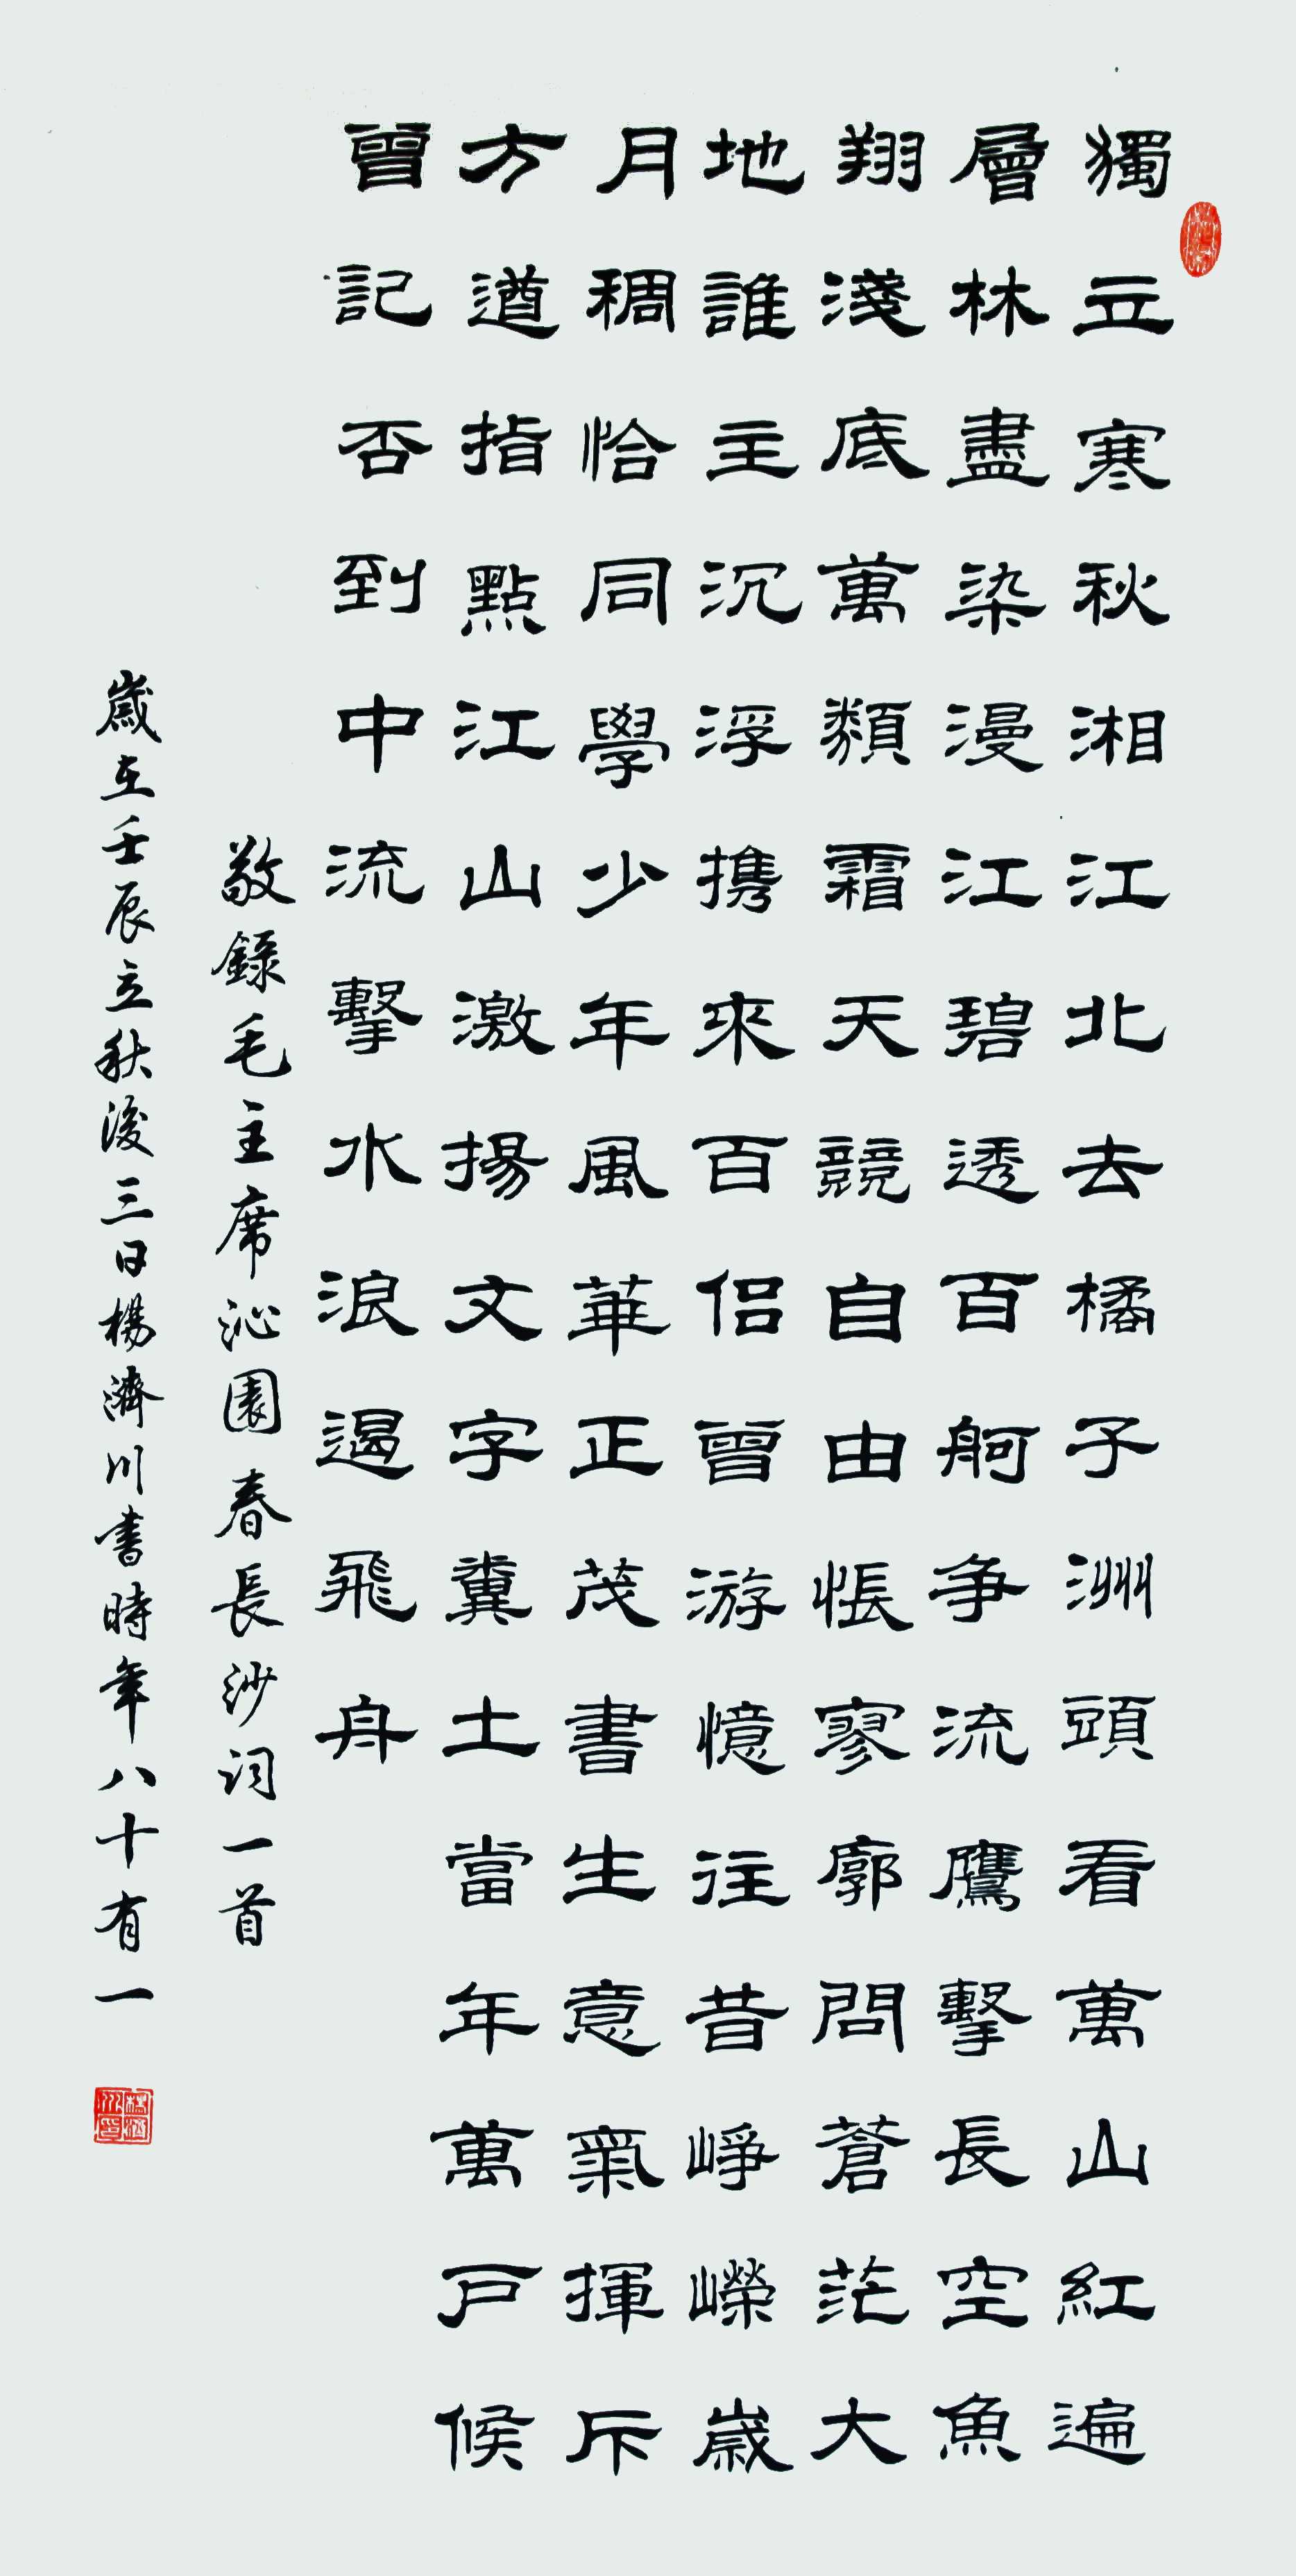 獨立寒秋湘江北去橘子洲頭看萬山紅遍
層林盡染漫江碧透百舸争流鷹擊長空魚
翔淺底萬類霜天競自由悵寥廓問蒼茫大
地誰主沉浮携來百侣曾游憶往昔崢嶸歲
月稠恰同學少年風華正茂書生意氣揮斥
方遒指點江山激揚文字糞土當年萬户候
曾記否到中流擊水浪遏飛舟
敬錄毛主席沁園春長沙词一首
歲在壬辰立秋後三日楊濟川書時年八十有一